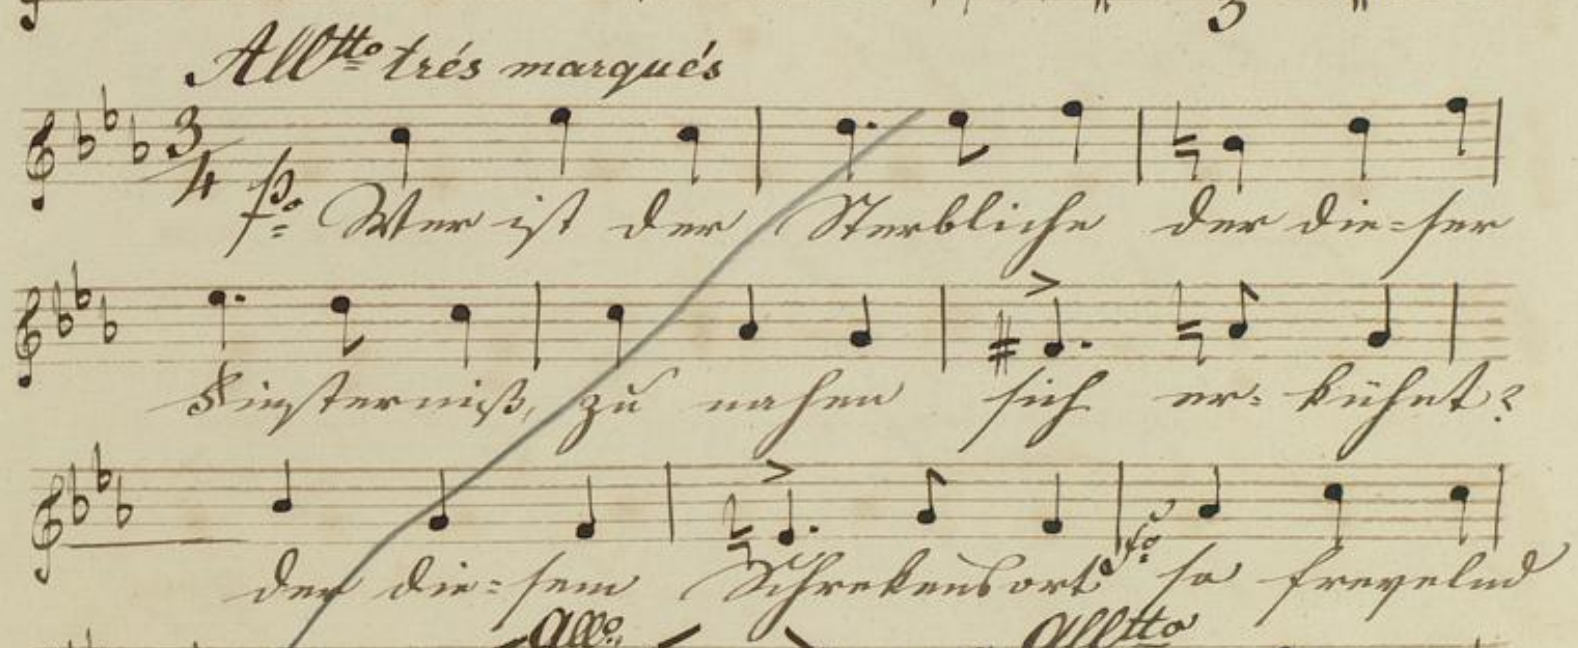 Alltto trés marqués
3/4
po Wer ist der Sterbliche der die=ser
Finsterniß, zu nahen sich er= kühnt?
der die=sem Schrekensort fo so frevelnd
Allo. Alltto